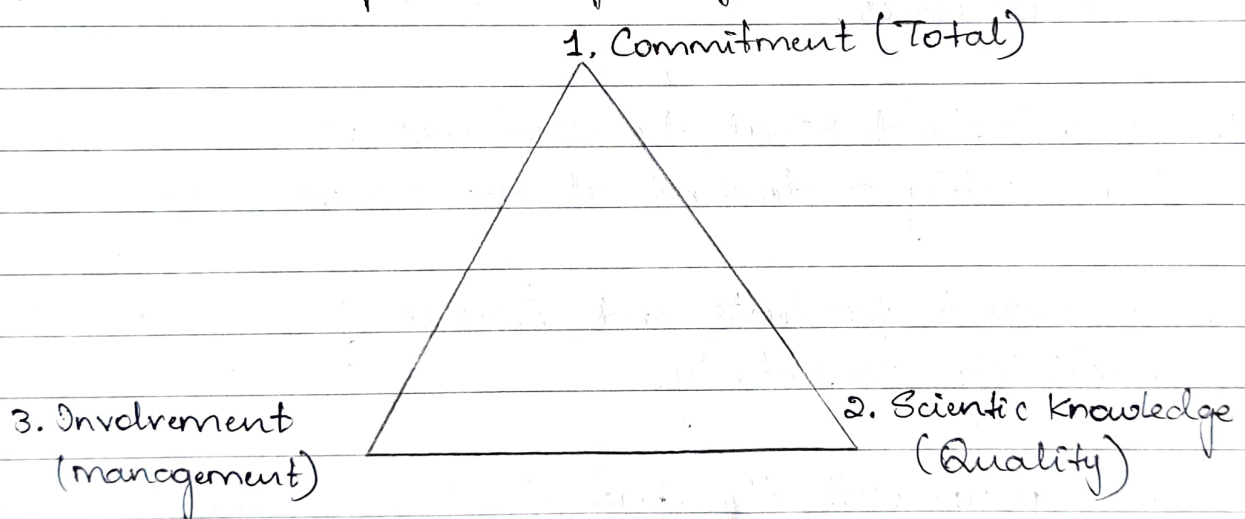 1. Commitment (Total)
3. Involvement
(management)
2. Scientic Knowledge
(Quality)